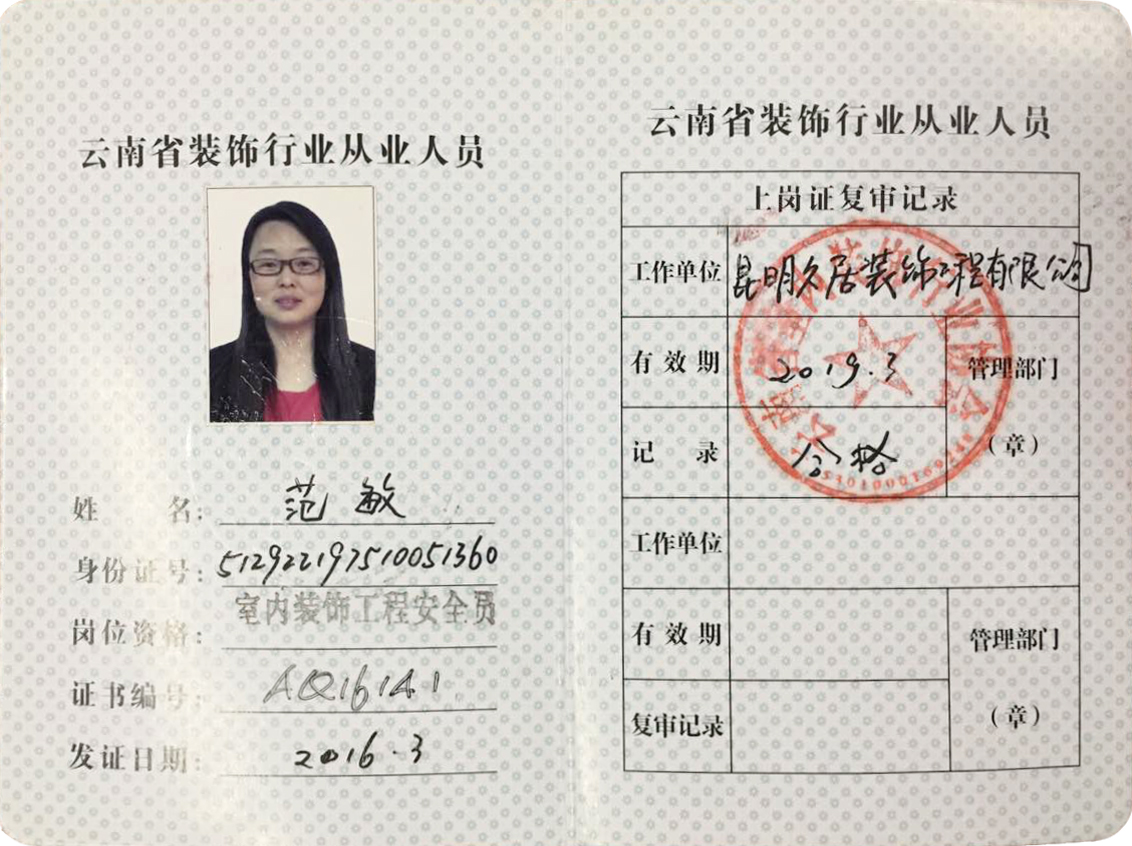 云南省装饰行业从业人员
姓 名： 范敏
身份证号： 512922197510051360
岗位资格： 室内装饰工程安全员
证书编号： AQ16141
发证日期： 2016.3
云南省装饰行业从业人员
上岗证复审记录
工作单位 昆明久居装饰工程有限公司
有效期 2019.3 管理部门
记 录 合格 （章）
云南省室内装饰行业协会
工作单位
有效期 管理部门
复审记录 （章）